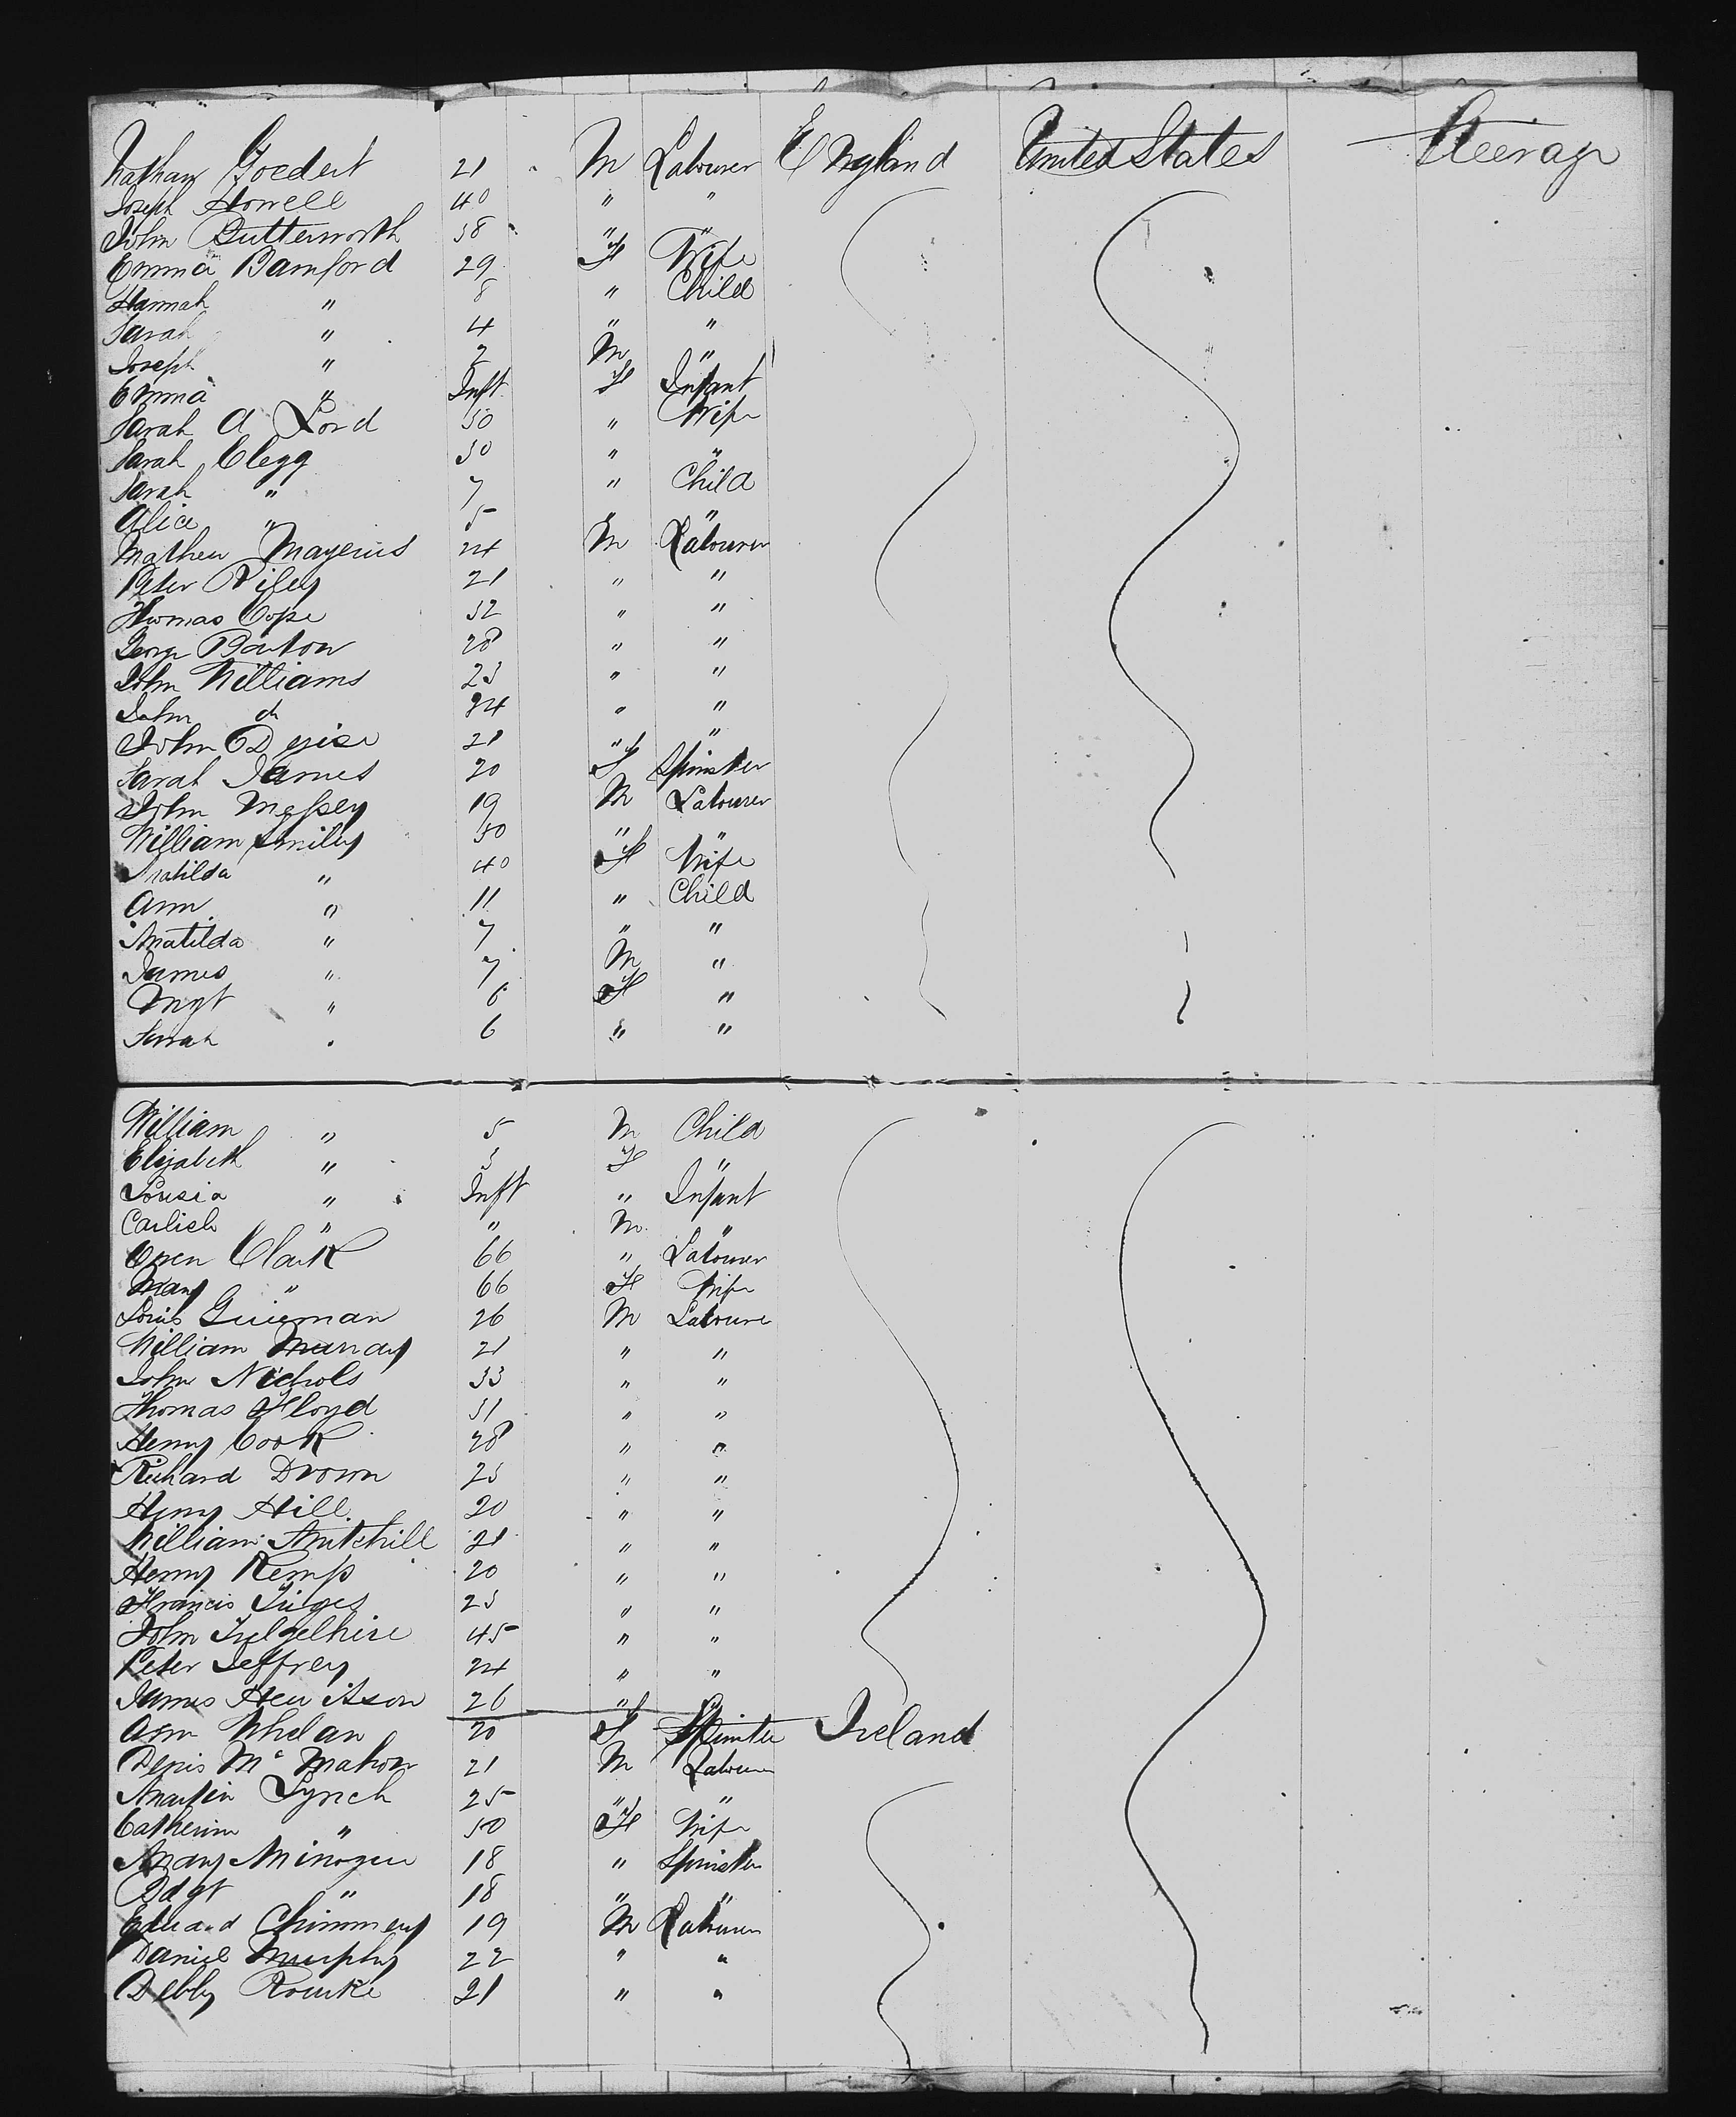 Nathan Goedert 21 M Labourer England United States Steerage
Joseph Howell 40 " "
John Butterworth 38 " "
Emma Bamford 29 F Wife
Hannah " 8 " Child
Sarah " 4 " "
Joseph " 2 M "
Emma " Inft F Infant
Sarah A Lord 30 " Wife
Sarah Clegg 30 " "
Sarah " 7 " Child
Alice " 5 " "
Mathew 24 M Labourer
Peter Rifley 21 " "
Thomas Cope 32 " "
George Barton 28 " "
John Williams 23 " "
John do 24 " "
John 21 " "
Sarah James 20 F Spinster
John Massey 19 M Labourer
William Smiley 30 " "
Matilda " 40 F Wife
Ann " 11 " Child
Matilda " 7 " "
James " 7 M "
Mgt " 6 F "
Sarah " 6 " "
William " 5 M Child
Elizabeth " 3 F "
Lousia " Inft " Infant
" " M "
Owen Clark 66 " Labourer
Mary " 66 F Wife
Louis 26 M Laboure
William Murray 21 " "
John Nichols 33 " "
Thomas Floyd 31 " "
Henry Cook 28 " "
Richard Drown 23 " "
Henry Hill 20 " "
William Mitchill 21 " "
Henry Kemp 20 " "
Francis 23 " "
John 45 " "
Peter Jeffrey 24 " "
James Hewitson 26 " "
Ann Whelan 20 F Spinster Ireland
Denis Mc Mahon 21 M Labourer
Martin Lynch 25 " "
Catherine " 50 F Wife
Mary Minogue 18 " Spinster
Bdgt " 18 " "
Edward Chimmery 19 M Labourer
Daniel Murphy 22 " "
Debby Rourke 21 " "